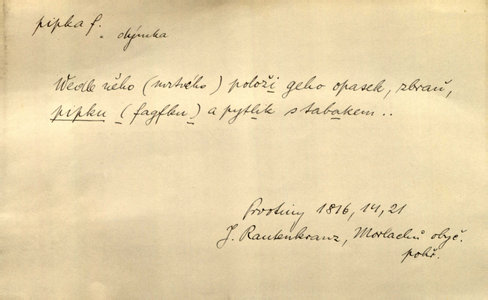 pipka f.
dýmka
Wedle něho (mrtvého) položí geho opasek, zbraň,
pipku (fagfku) a pytlik s tabakem..
Prvotiny 1816, 14, 21
J. Rautenkranz, Morlachů obyč.
pohř.